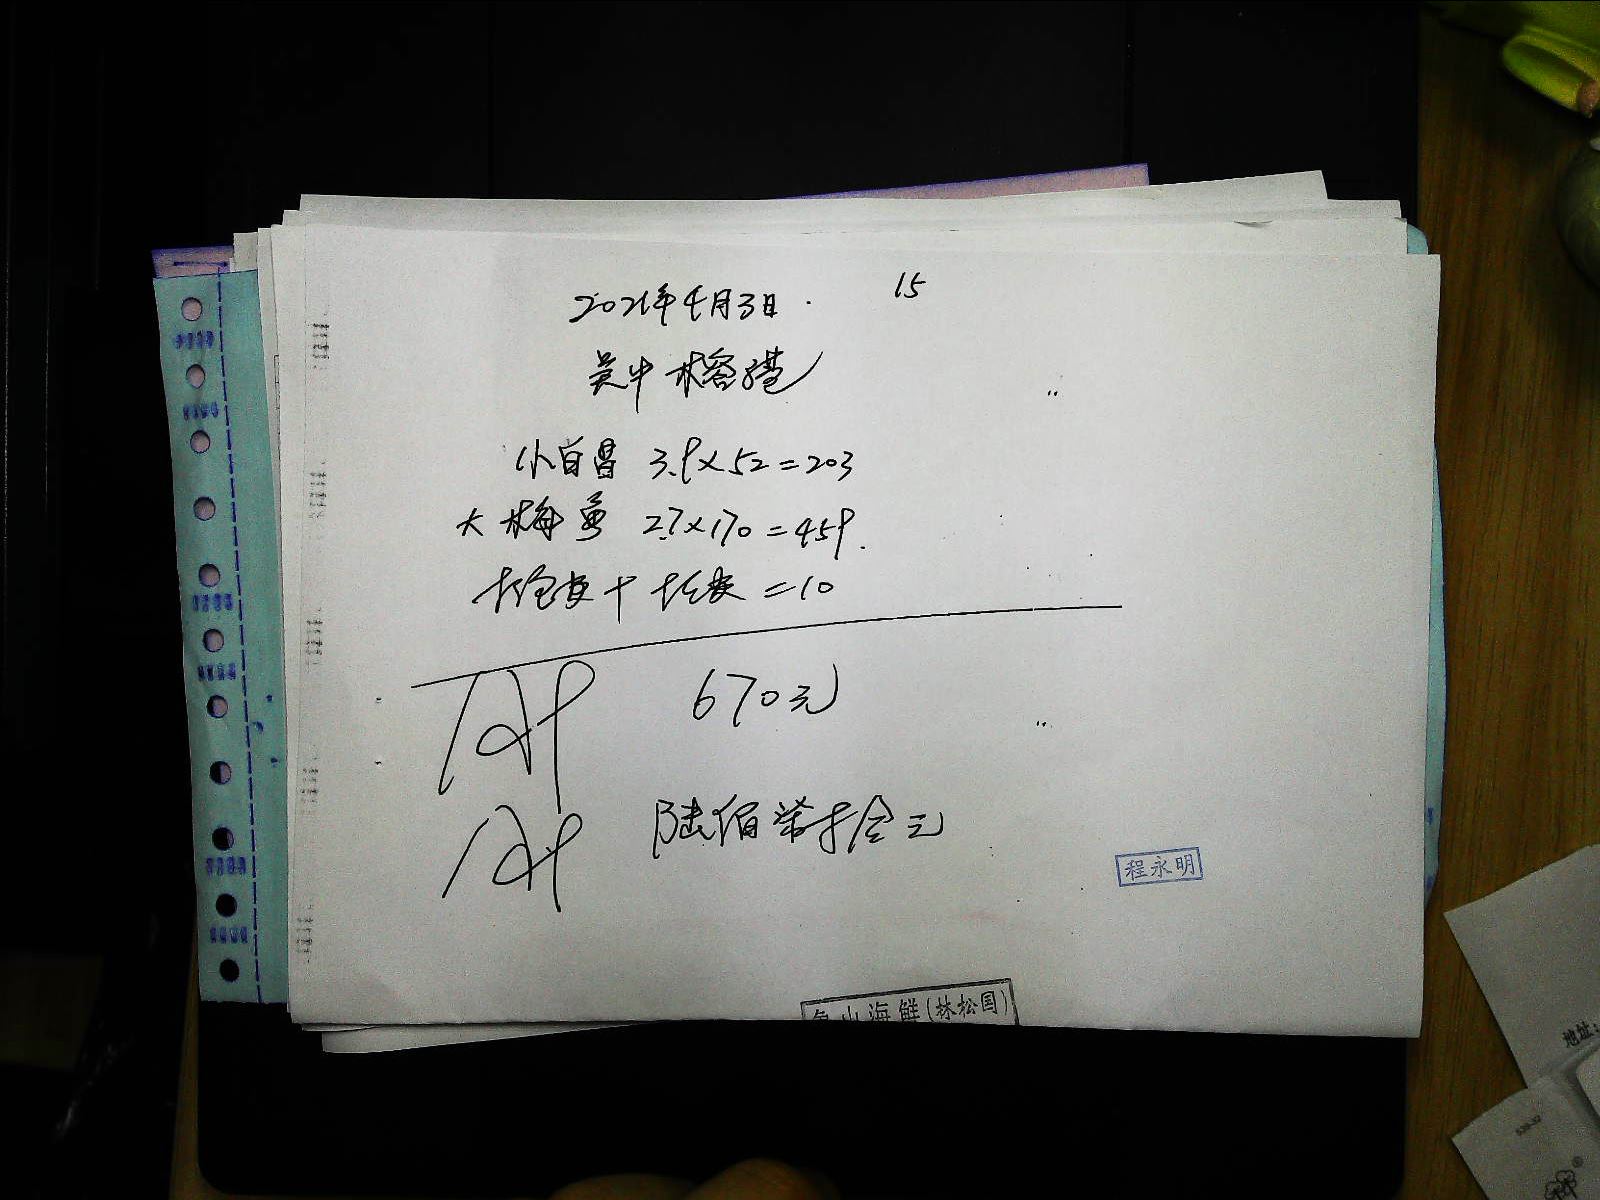 2021年4月3日
15
吴中 榕港
小白昌 3.9×52=203
大梅鱼 2.7×170=459.
打包费+托费=10
670元
陆佰柒拾元
程永明
象山海鲜(林松国)
地址: